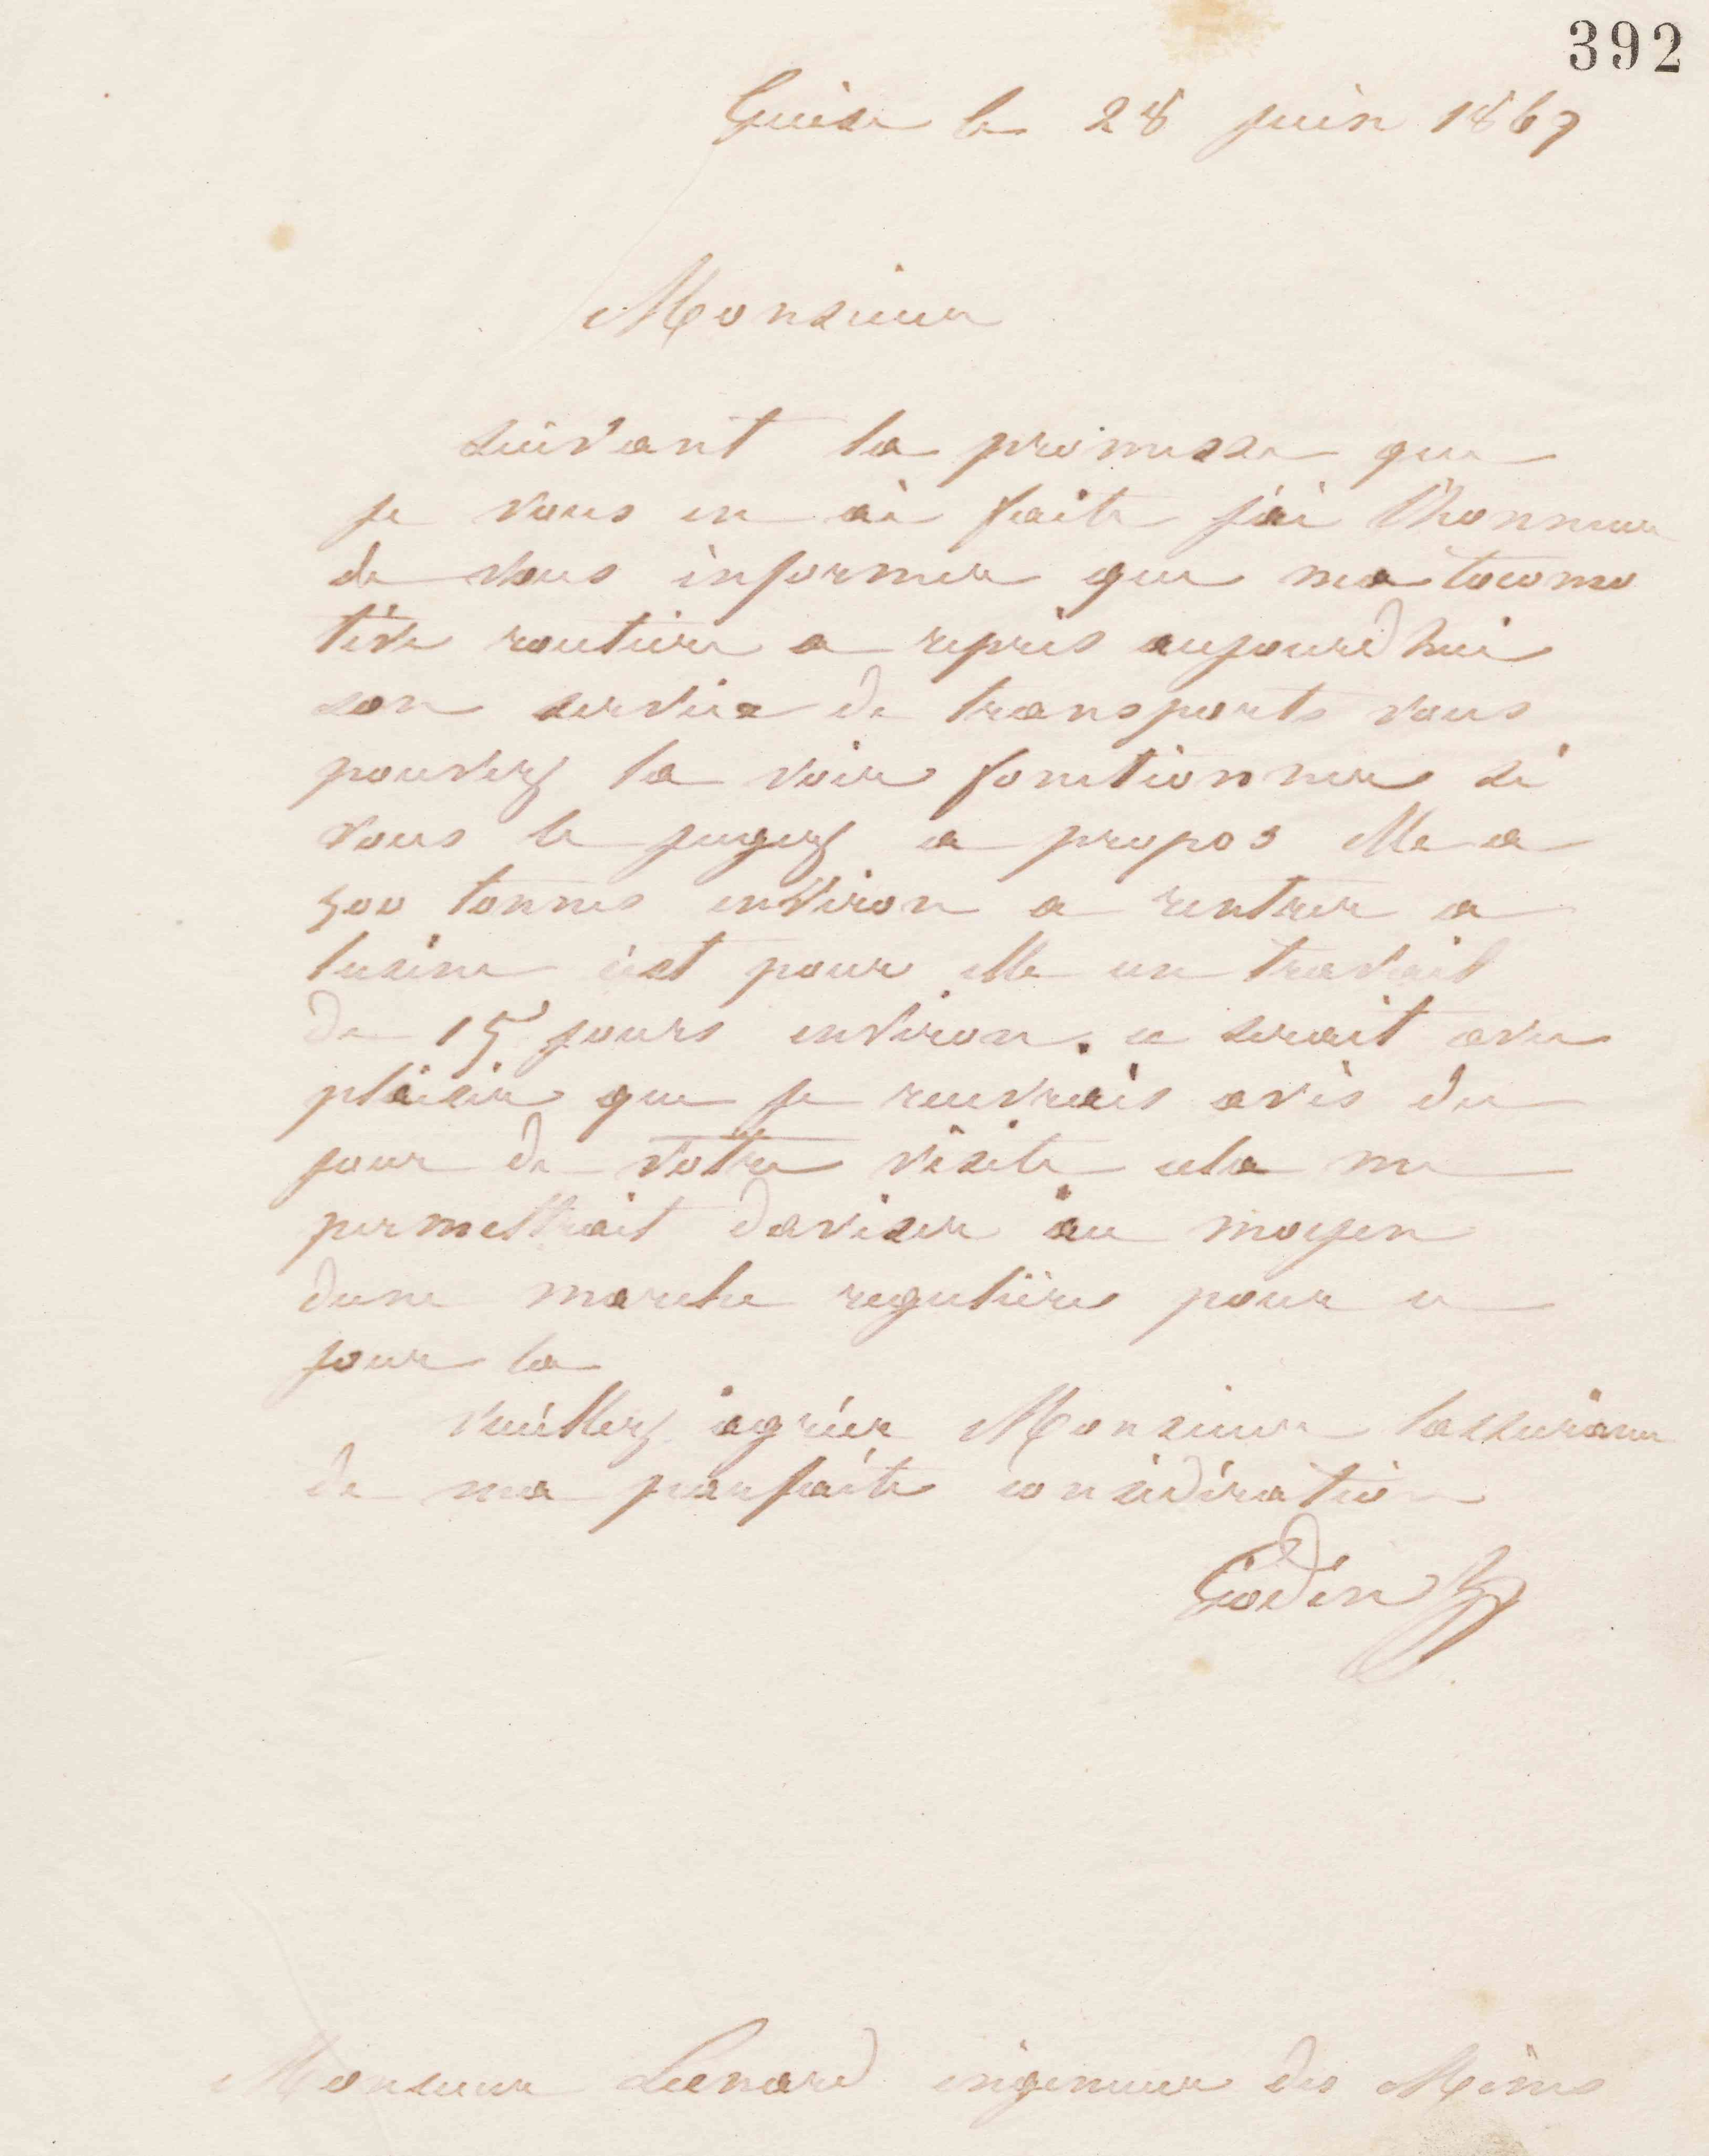 392
Guise le 28 juin 1867
Monsieur
suivant la promesse que
je vous en ai faite j'ai l'honneur
de vous informer que ma locomo
tive routiere a repris aujourd'hui
son service de transports vous
pouvez la voir fonctionner si
vous le jugez a propos elle a
500 tonnes environ a rentrer a
lusine c'est pour elle un travail
de 15 jours environ. ce serait avec
plaisir que je recevrais avis du
jour de votre visite cela me
permettrait daviser au moyen
dune marche regulière pour ce
jour la
veuillez agréer Monsieur lassurance
de ma parfaite considération
Godin
Monsieur ingenieur des Mines